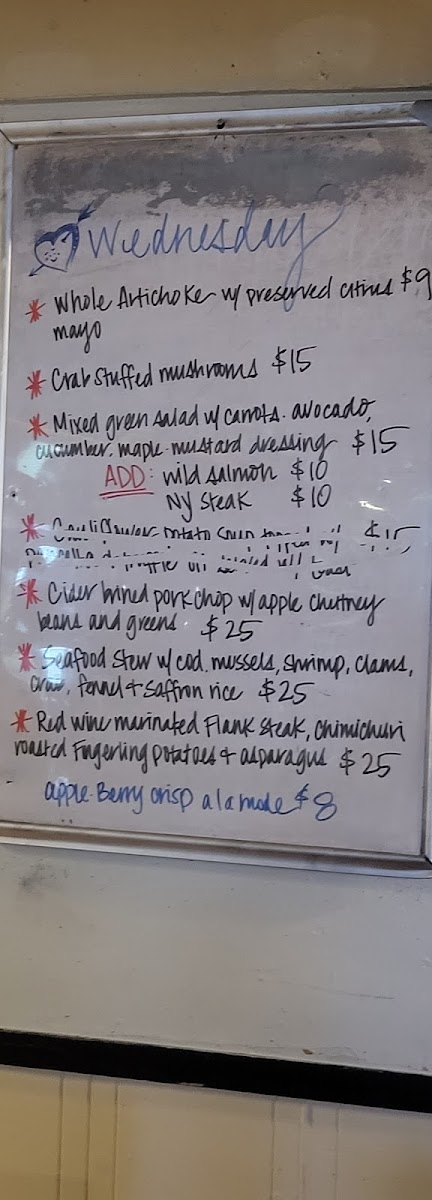 Wednesday
* Whole Artichoke w/ preserved citrus $9
mayo
* Crab stuffed mushrooms $15
* Mixed green salad w/ carrots. avocado,
cucumber. maple-mustard dressing $15
ADD: wild salmon $10
NY Steak $10
* Cauliflower potato soup $15
* Cider brined pork chop w/ apple chutney
beans and greens $25
* Seafood Stew w/ cod. mussels, shrimp, clams,
crab, fennel + saffron rice $25
* Red wine marinated Flank steak, chimichuri
roasted Fingerling potatoes + asparagus $25
apple-Berry crisp a la mode $8